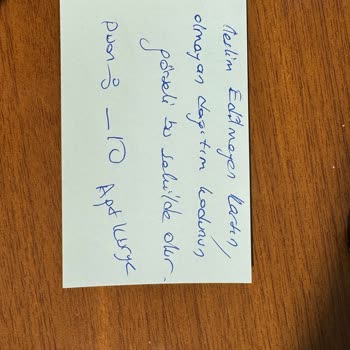 Teslim Edilmeyen kartın,
olmayan dagıtım kodunun
görseli bu sekilde olur.
- 10 Apt kurye